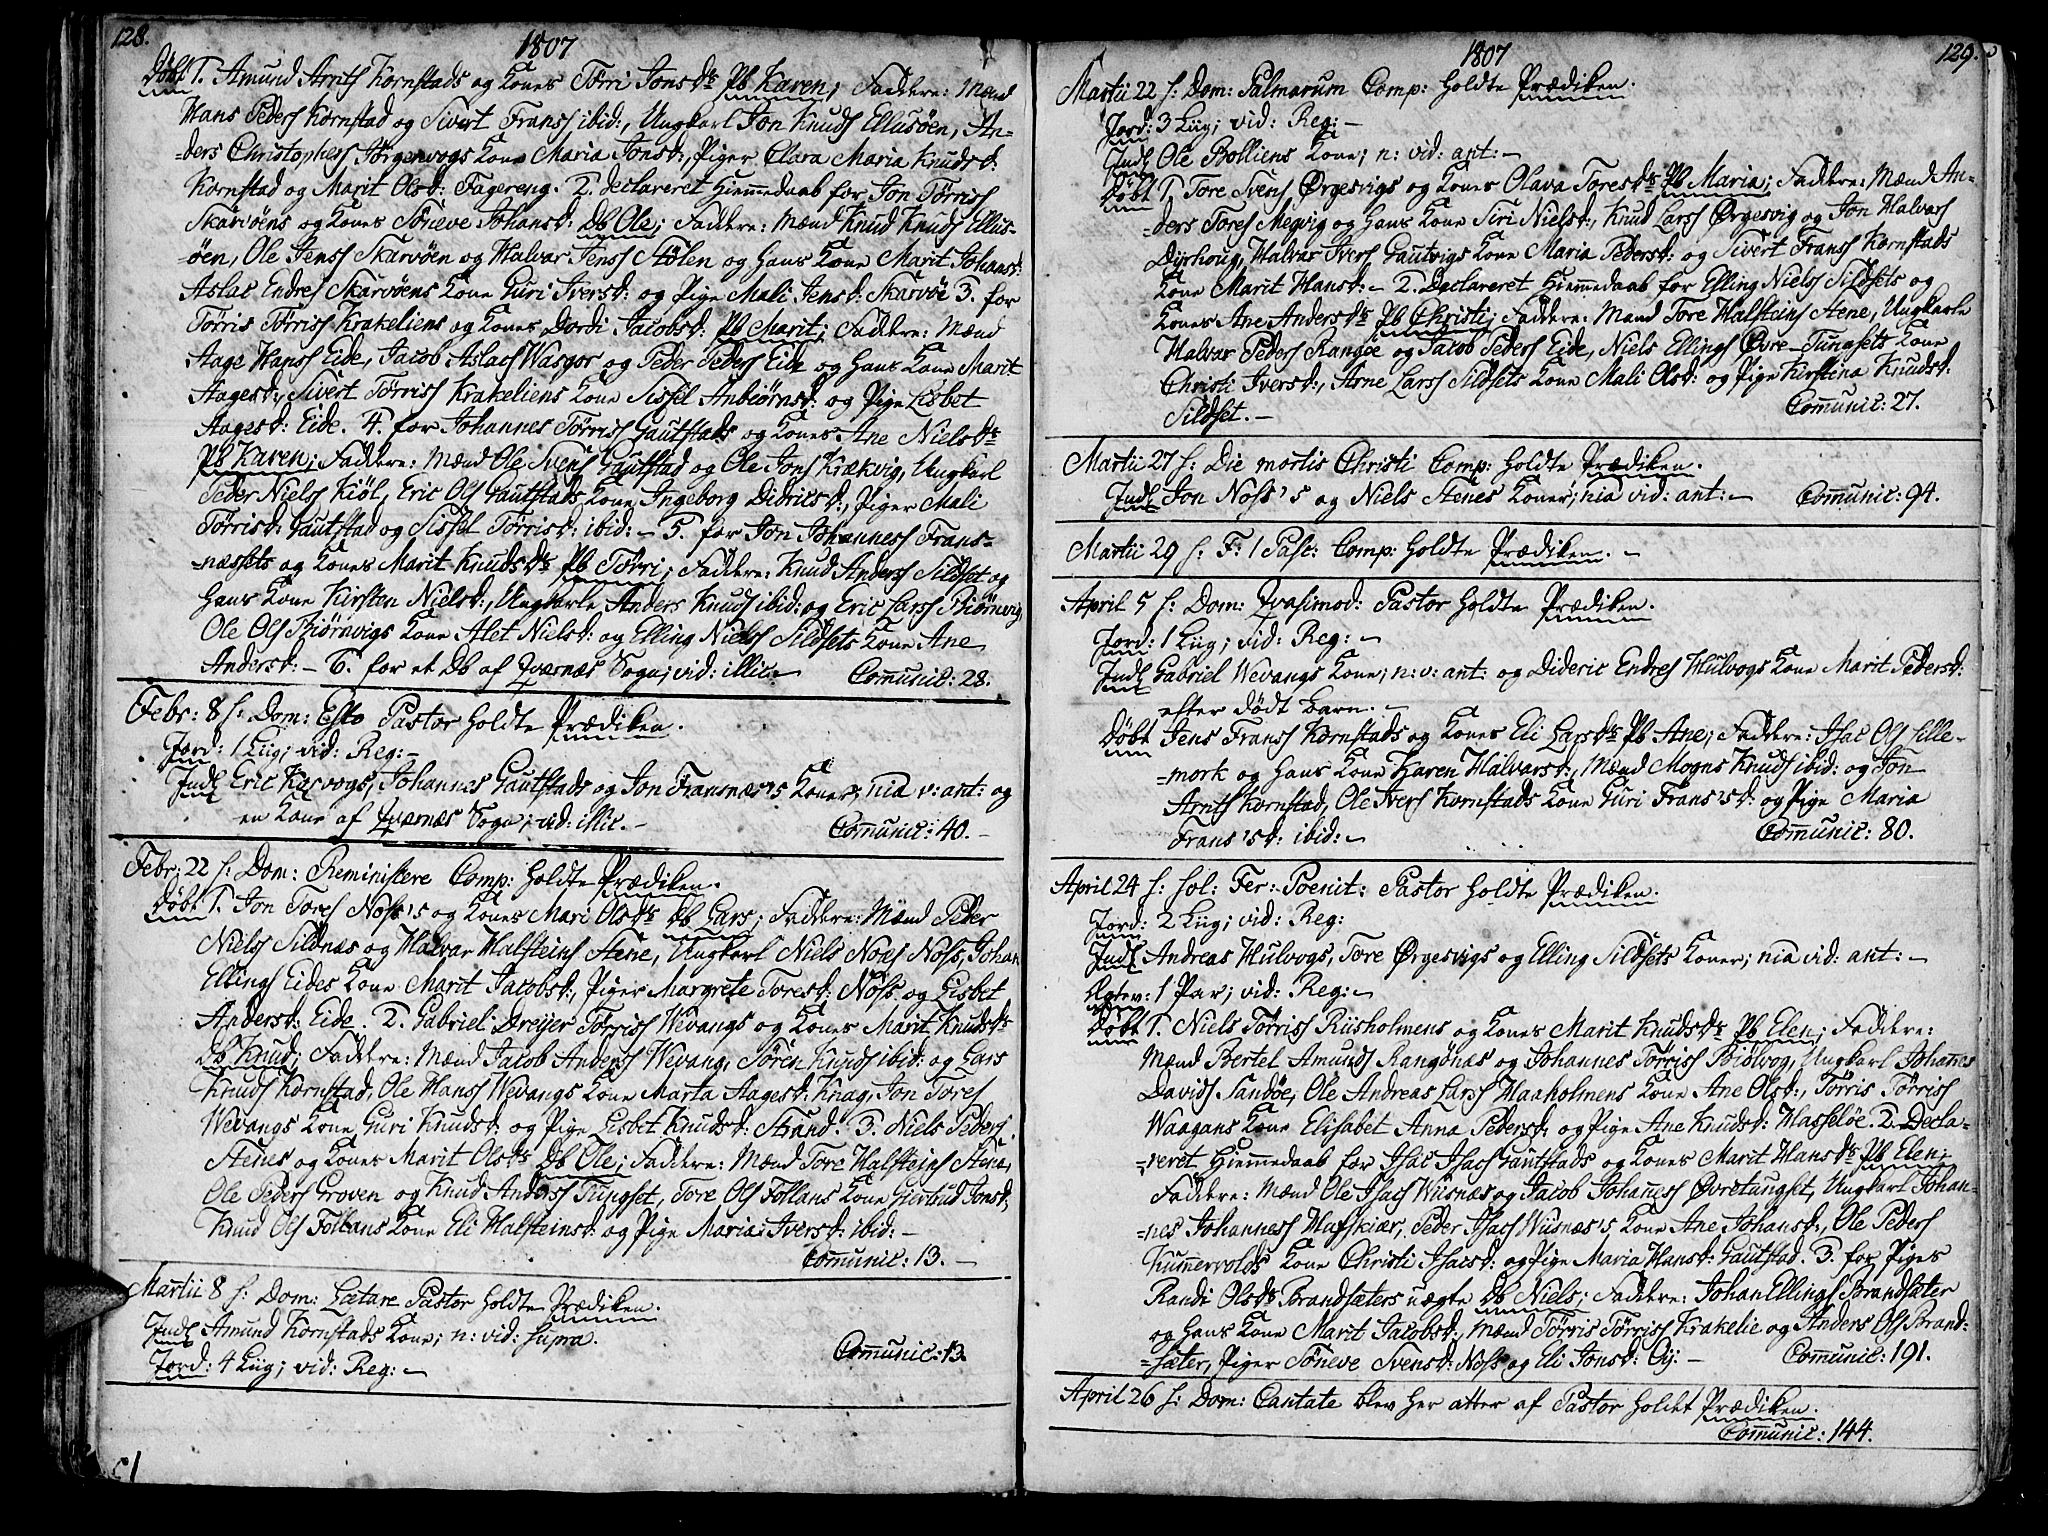 128.
1807
Døbt 1. Amund Arnts Kornstads og Kones Torri Jonsdr Pb Karen; Faddere: Mænd
Hans Peders Kornstad og Sivert Frans's ibid:, Ungkarl Jon Knuds Ellusøen, An-
-ders Christophers Jørgenvogs Kone Maria Jonsd:, Piger Clara Maria Knudsd:
Kornstad og Marit Olsd: Fagereng. 2. declareret Hiemmedaab for Jon Tørris's
Skarvøens og Kones Tøneve Johansd: Db Ole; Faddere: Mænd Knud Knuds Ellus-
-øen, Ole Jens's Skarvøen og Halvar Jens's Stølen og Hans Kone Marit Johansd:
Aslac Endres Skarvøens Kone Guri Iversd: og Pige Mali Jensd: Skarvøe 3. for
Tørris Tørris's Krakeliens og Kones Dordi Jacobsd: Pb Marit; Faddere: Mænd
Aage Hans's Eide, Jacob Aslacs Wasgor og Peder Peders Eide og Hans Kone Marit
Aagesd:, Sivert Tørris's Krakeliens Kone Sissel Anbiørnsd: og Pige Lisbet
Aagesd: Eide. 4. for Johannes Tørris's Gautstads og Kones Ane Nielsdr
Pb Karen; Faddere: Mænd Ole Svens Gautstad og Ole Jons Krækvig, Ungkarl
Peder Niels's Kiøl, Eric Ols Gautstads Kone Ingeborg Didricsd:, Piger Mali
Tørrisd: Gautstad og Sissel Tørrisd: ibid: - 5. for Jon Johannes's Frans-
-næssets og Kones Marit Knudsdr Pb Torri; Faddere: Knud Anders's Sildset og
Hans Kone Kirsten Nielsd:, Ungkarle Anders Knuds ibid: og Eric Lars's Biørnvig
Ole Ols Biørnvigs Kone Alet Nielsd: og Elling Niels's Sildsets Kone Ane
Andersd: - 6. for et Db af Qværnæs Sogn; vid: illic. Comunic: 28.
Febr: 8 s: Dom: Esto Pastor holdte Prædiken.
Jord: 1 Liig; vid: Reg: -
Indl Eric Karvogs, Johannes Gautstads og Jon Fransnæs's Koner; nia v: ant: og
en Kone af Qværnæs Sogn; vid: illic. - Comunic: 40. -
Febr: 22 s: Dom: Reministere Comp: holdte Prædiken.
Døbt 1. Jon Tores Noss's og Kones Mari Olsdr Db Lars; Faddere: Mænd Peder
Niels's Sildnæs og Halvar Halsteins Stene, Ungkarl Niels Noes Noss, Johan
Ellings Eides Kone Marit Jacobsd:, Piger Margrete Toresd: Noss og Lisbet
Andersd: Eide. 2. Gabriel Dreijer Tørris's Wevangs og Kones Marit Knudsdr
Db Knud; Faddere: Mænd Jacob Anders's Wevang, Søren Knuds ibid: og Lars
Knuds Kornstad, Ole Hans's Wevangs Kone Marta Aagesd: Knag, Jon Tores
Wevangs Kone Guri Knudsd: og Pige Lisbet Knudsd: Strand. 3. Niels Peders
Stenes og Kones Marit Olsdr Db Ole; Faddere: Mænd Tore Halsteins Stene,
Ole Peders Groven og Knud Anders's Tungset, Tore Ols Follans Kone Giertrud Jonsd:,
Knud Ols Follans Kone Eli Halsteinsd: og Pige Maria Iversd: ibid: -
Comunic: 13. -
Martii 8 s: Dom: Lætare Pastor holdte Prædiken.
Indl Amund Kornstads Kone; n: vid: supra. Comunic: 13.
Jord: 4 Liig; vid: Reg: -
1807
129.
Martii 22 s: Dom: Palmarum Comp: holdte Prædiken.
Jord: 3 Liig; vid: Reg: -
Indl Ole Bolliens Kone; n: vid: ant: -
Døbt 1. Tore Svens Ørgesvigs og Kones Olava Toresdr Pb Maria; Faddere: Mænd An-
-ders Tores Megvig og Hans Kone Siri Nielsd:, Knud Lars's Ørgesvig og Jon Halvars
Dyrhoug, Halvar Ivers Gautvigs Kone Maria Pedersd: og Sivert Frans's Kornstads
Kone Marit Hansd: - 2. Declareret Hiemmedaab for Elling Niels's Sildsets og
Kones Ane Andersdr Pb Christi; Faddere: Mænd Tore Halsteins Stene, Ungkarle
Halvar Peders Rangøe og Jacob Peders Eide, Niels Ellings Øvre-Tungsets Kone
Christi Iversd:, Arne Lars's Sildsets Kone Mali Olsd: og Pige Kirstina Knudsd:
Sildset. - Comunic: 27.
Martii 27 s: Die mortis Christi Comp: holdte Prædiken.
Indl Jon Noss's og Niels Stenes Koner; nia vid: ant: - Comunic: 94.
Martii 29 s: F: 1 Pasc: Comp: holdte Prædiken. -
April 5 s: Dom: Qvasimod: Pastor holdte Prædiken.
Jord: 1 Liig; vid: Reg: -
Indl Gabriel Wevangs Kone; n: v: ant: og Dideric Endres Hulvogs Kone Marit Pedersd:
efter dødt Barn. -
Døbt Jens Frans's Kornstads og Kones Eli Larsdr Pb Ane; Faddere: Isac Ols Lille-
-mork og Hans Kone Karen Halvarsd:, Mænd Mogns Knuds ibid: og Jon
Arnts Kornstad, Ole Ivers Kornstads Kone Guri Frans'sd: og Pige Maria
Frans'sd: ibid: - Comunic: 80.
April 24 s: Sol: Fer: Poenit: Pastor holdte Prædiken.
Jord: 2 Liig; vid: Reg:
Indl Andreas Hulvogs, Tore Ørgesvigs og Elling Sildsets Koner; nia vid: ant: -
Ægtev: 1 Par; vid: Reg: -
Døbt 1. Niels Tørris's Riisholmens og Kones Marit Knudsdr Pb Elen; Faddere:
Mænd Bertel Amunds Rangønæs og Johannes Tørris's Biølvog, Ungkarl Johanes
Davids Sandøe, Ole Andreas Lars's Haaholmens Kone Ane Olsd:, Tørris Tørris's
Waagans Kone Elisabet Anna Pedersd: og Pige Ane Knudsd: Hasseløe. 2. Decla-
-reret Hiemmedaab for Isac Isacs Gautstads og Kones Marit Hansdr Pb Elen;
Faddere: Mænd Ole Isacs Wiisnæs og Jacob Johanes's Øvretungset, Ungkarl Johan-
-nes Johannes's Hafskiær, Peder Isacs Wiisnæs's Kone Ane Johansd:, Ole Peders
Kummervolds Kone Christi Isacsd: og Pige Maria Hansd: Gautstad. 3. for Piges
Randi Olsdr Brandsæters uægte Db Niels; Faddere: Johan Ellings Brandsæter
og Hans Kone Marit Jacobsd:, Mænd Tørris Tørris's Krakelie og Anders Ols Brand-
-sæter, Piger Tøneve Svensd: Noss og Eli Jonsd: Øy. - Comunic: 191.
April 26 s: Dom: Cantate blev her atter af Pastor holdet Prædiken.
Comunic: 144.